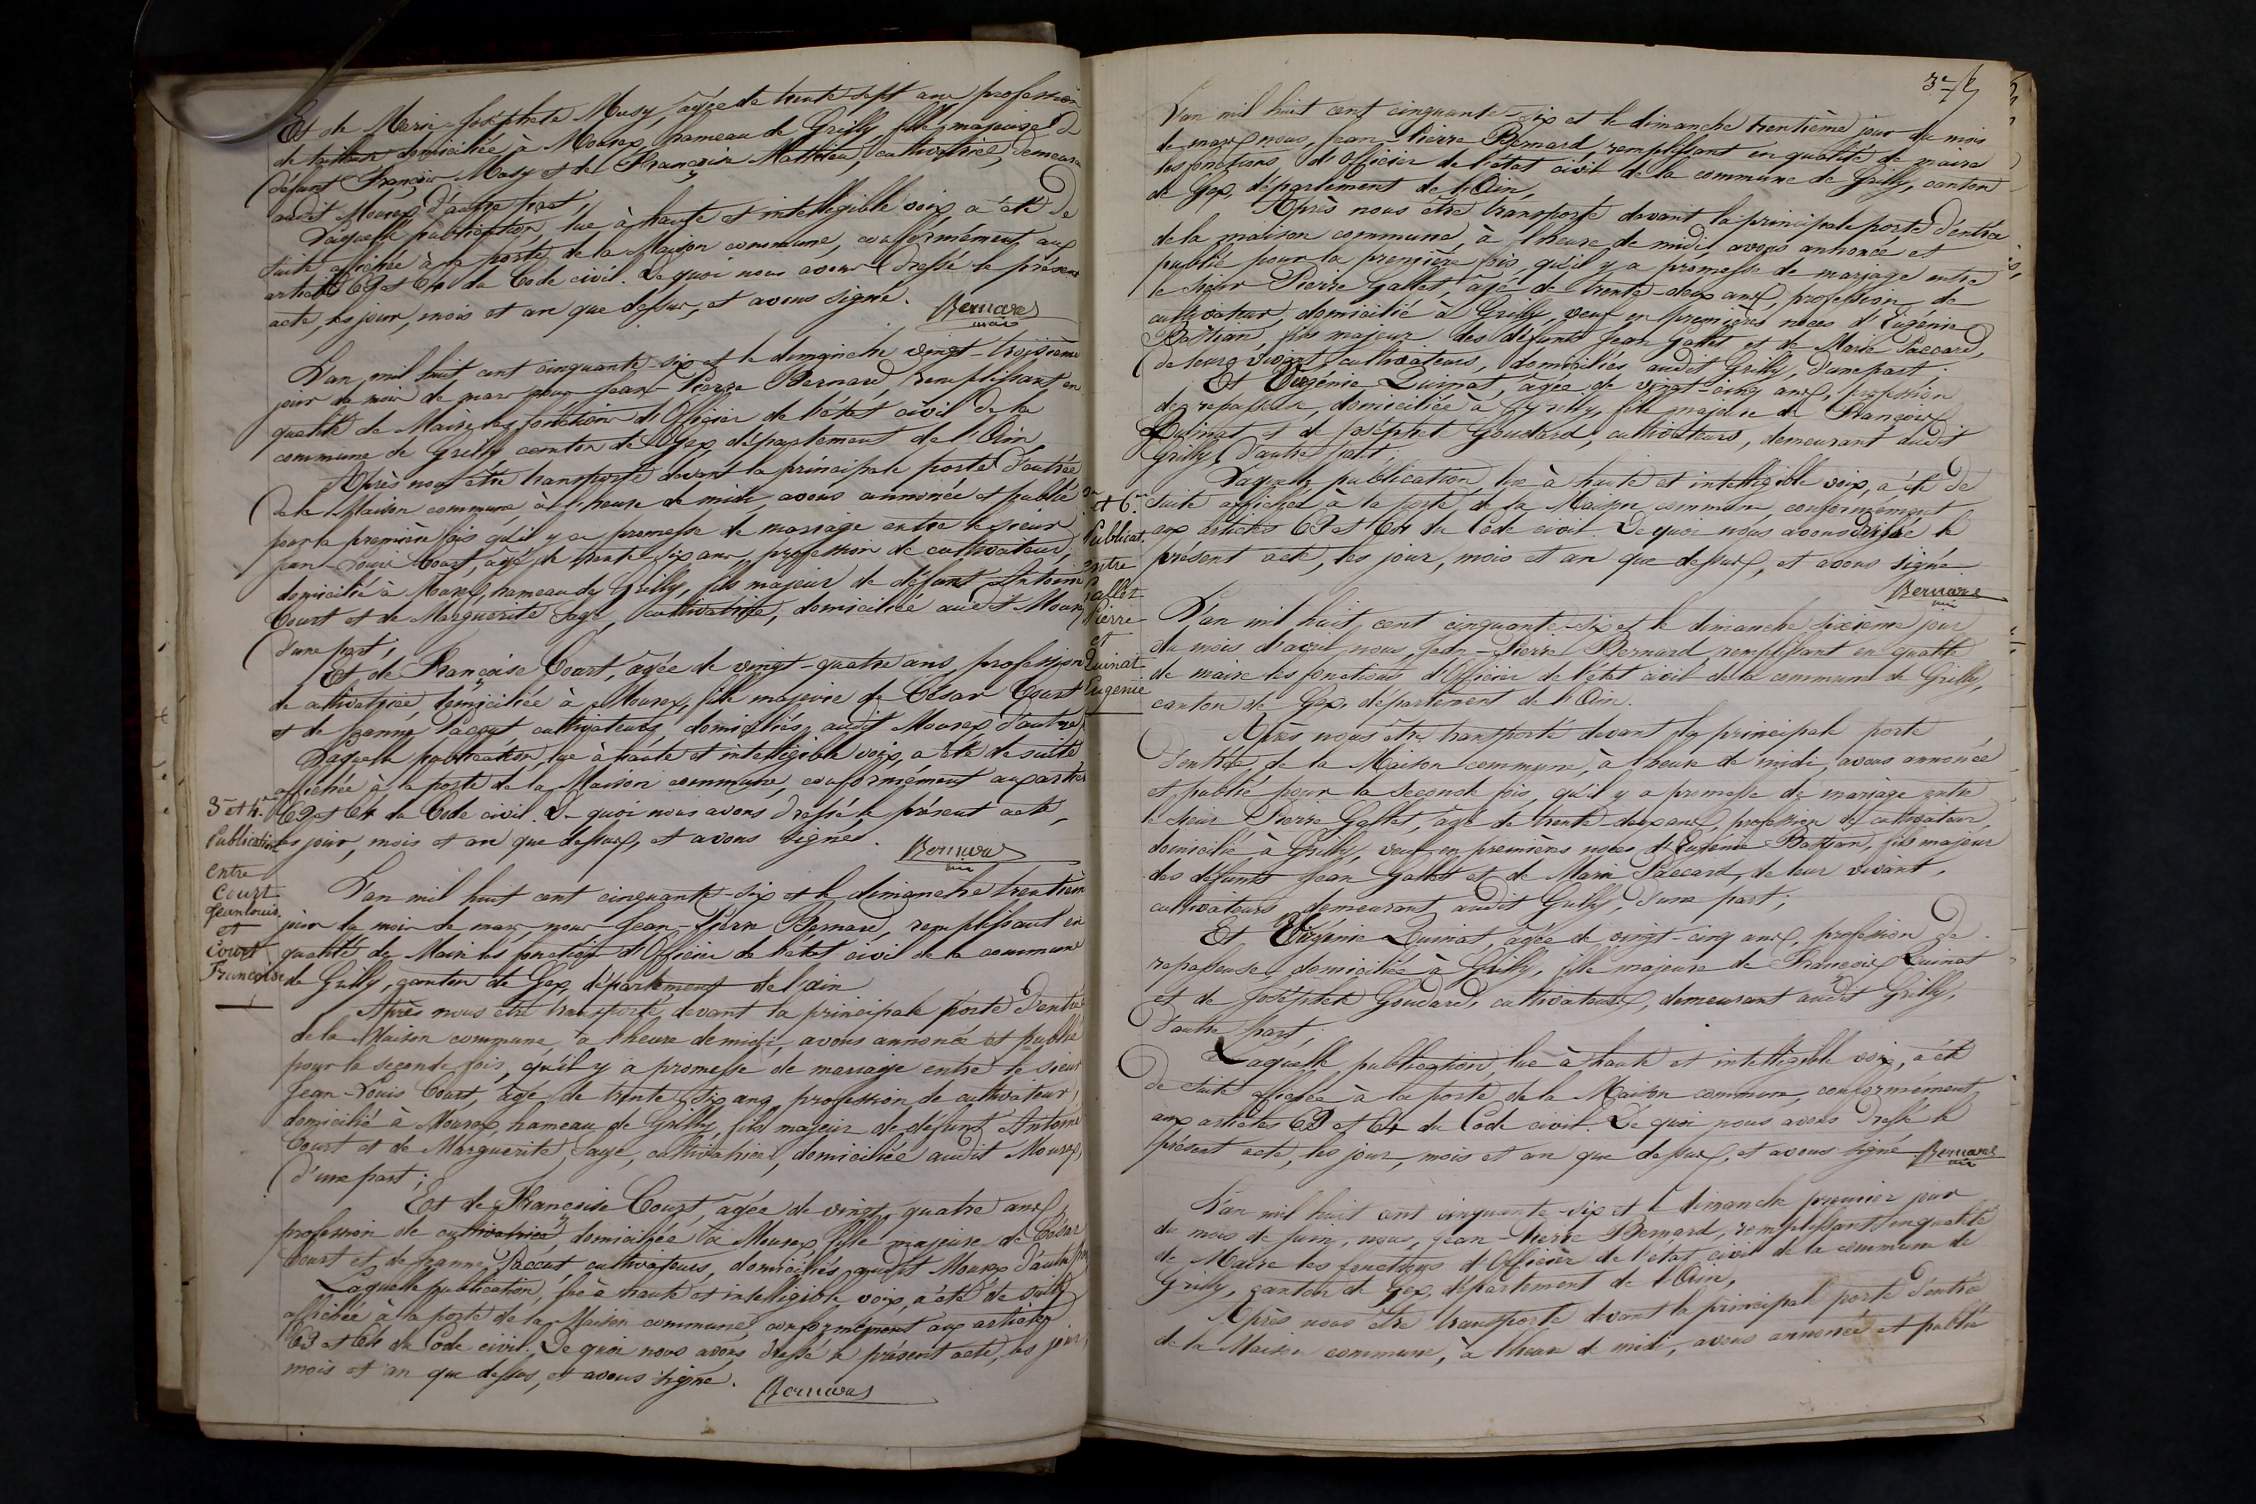 Et de Marie-Josephte Musy, âgée de trente-sept ans profession
de tailleuse domiciliée à Mourex, hameau de Grilly, fille majeure de
défunt François Musy et de Françoise Mathieu, cultivatrice, demeurant
audit Mourex, d'autre part;
Laquelle publication, lue à haute et intelligible voix, a été de
suite affichée à la porte de la Maison commune, conformément aux
articles 63 et 64 du Code civil. De quoi nous avons dressé le présent
acte, les jour, mois et an que dessus, et avons signé.
Bernard
maire
L'an mil huit cent cinquante-six et le dimanche vingt-troisième
jour du mois de mars nous Jean-Pierre Bernard, remplissant en
qualité de Maire les fonctions d'Officier de l'état civil de la
commune de Grilly canton de Gex département de l'Ain,
Après nous être transporté devant la principale porte d'entrée
de la Maison commune, à l'heure de midi, avons annoncé et publié
pour la première fois qu'il y a promesse de mariage entre le sieur
Jean-Louis Court, âgé de trente-six ans, profession de cultivateur,
domicilié à Mourex, hameau de Grilly, fils majeur de défunt Antoine
Court et de Marguerite Sage, cultivatrice, domiciliée audit Mourex
d'une part;
Et de Françoise Court, âgée de vingt-quatre ans, profession
de cultivatrice, domiciliée à Mourex, fille majeure de César Court
et de Jeanne Paccut cultivateurs, domiciliés audit Mourex, d'autre
Laquelle publication, lue à haute et intelligible voix, a été de suite
affichée à la porte de la Maison commune, conformément aux articles
63 et 64 du Code civil. De quoi nous avons dressé le présent acte,
les jour, mois et an que dessus, et avons signé.
Bernard
maire
3e et 4e
Publication
entre
Court
Jean Louis
et
Court
Françoise
L'an mil huit cent cinquante-six et le dimanche trentième
jour du mois de mars, nous Jean-Pierre Bernard, remplissant en
qualité de Maire les fonctions d'Officier de l'état civil de la commune
de Grilly, canton de Gex, département de l'Ain
Après nous être transporté, devant la principale porte d'entrée
de la Maison commune, à l'heure de midi, avons annoncé et publié
pour la seconde fois, qu'il y a promesse de mariage entre le sieur
Jean-Louis Court, âgé de trente-six ans, profession de cultivateur,
domicilié à Mourex, hameau de Grilly, fils majeur de défunt Antoine
Court et de Marguerite Sage, cultivatrice, domiciliée audit Mourex
d'une part;
Et de Françoise Court, âgée de vingt-quatre ans,
profession de cultivatrice domiciliée à Mourex, fille majeure de César
Court et de Jeanne Paccut, cultivateurs, domiciliés audit Mourex d'autre part
Laquelle publication, lue à haute et intelligible voix, a été de suite
affichée à la porte de la Maison commune, conformément aux articles
63 et 64 du Code civil. De quoi nous avons dressé le présent acte, les jour,
mois et an que dessus, et avons signé.
Bernard
3e
L'an mil huit cent cinquante-six et le dimanche trentième jour du mois
de mars nous, Jean-Pierre Bernard, remplissant en qualité de maire
les fonctions d'Officier de l'état civil de la commune de Grilly, canton
de Gex, département de l'Ain,
Après nous être transporté devant la principale porte d'entrée
de la maison commune, à l'heure de midi, avons annoncé et
publié pour la première fois, qu'il y a promesse de mariage entre
le sieur Pierre Gallet, âgé de trente-deux ans, profession de
cultivateur, domicilié à Grilly, veuf en premières noces d'Eugénie
Bastian, fils majeur des défunts Jean Gallet et de Marie Paccard,
de leurs vivant, cultivateurs, domiciliés audit Grilly, d'une part;
Et Eugénie Quinat, âgée de vingt-cinq ans, profession
de repasseuse, domiciliée à Grilly, fille majeure de François
Quinat et de Joséphte Goudard, cultivateurs, demeurant audit
Grilly d'autre part;
Laquelle publication, lue à haute et intelligible voix, a été de
suite affichée à la porte de la Maison commune conformément
aux articles 63 et 64 du Code civil. De quoi nous avons dressé le
présent acte, les jour, mois et an que dessus, et avons signé
Bernard
maire
et 6e
Publicat.
entre
Gallet
Pierre
et
Quinat
Eugénie
L'an mil huit cent cinquante-six et le dimanche sixième jour
du mois d'avril nous, Jean-Pierre Bernard remplissant en qualité
de maire les fonctions d'Officier de l'état civil de la commune de Grilly,
canton de Gex, département de l'Ain.
Après nous être transporté devant la principale porte
d'entrée de la Maison commune, à l'heure de midi, avons annoncé
et publié pour la seconde fois, qu'il y a promesse de mariage entre
le sieur Pierre Gallet, âgé de trente-deux ans, profession de cultivateur
domicilié à Grilly, veuf en premières noces d'Eugénie Bastian, fils majeur
des défunts Jean Gallet et de Marie Paccard, de leur vivant,
cultivateurs demeurant audit Grilly, d'une part;
Et Eugénie Quinat, âgée de vingt-cinq ans, profession de
repasseuse, domiciliée à Grilly, fille majeure de François Quinat
et de Joséphte Goudard, cultivateurs, demeurant audit Grilly,
d'autre part;
Laquelle publication lue à haute et intelligible voix, a été
de suite affichée à la porte de la Maison commune, conformément
aux articles 63 et 64 du Code civil. De quoi nous avons dressé le
présent acte, les jour, mois et an que dessus, et avons signé Bernard
maire
L'an mil huit cent cinquante-six et le dimanche premier jour
du mois de juin, nous, Jean-Pierre Bernard, remplissant en qualité
de Maire les fonctions d'Officier de l'état civil de la commune de
Grilly, canton de Gex, département de l'Ain,
Après nous être transporté devant la principale porte d'entrée
de la Maison commune, à l'heure de midi, avons annoncé et publié